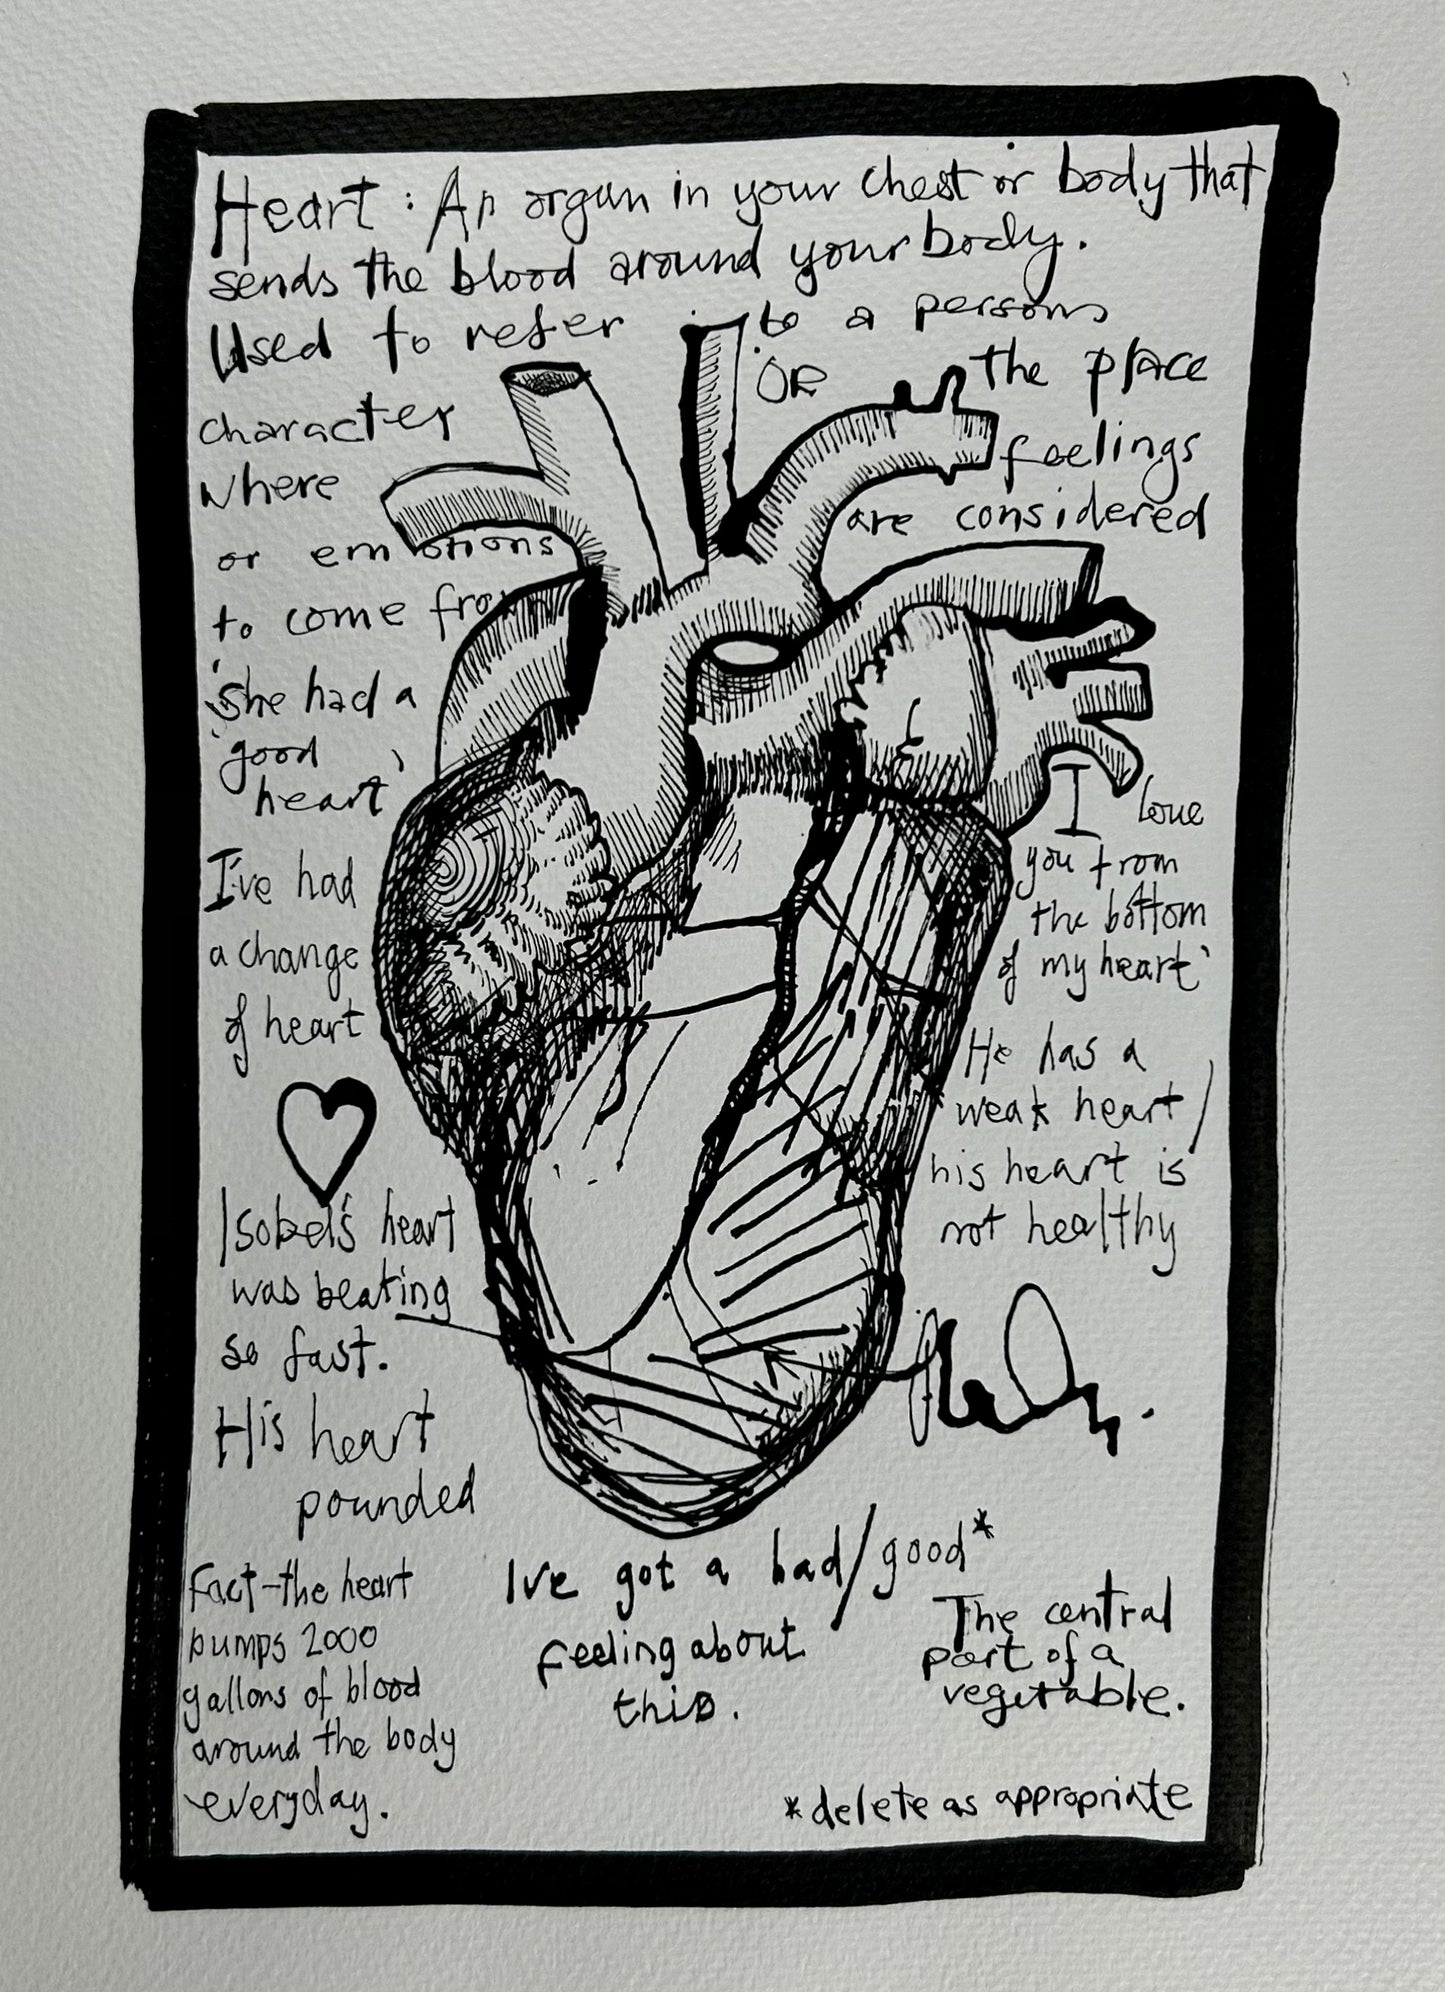 Heart : An organ in your chest or body that
sends the blood around your body.
Used to refer to a persons
character OR the place
where feelings
are considered
or emotions
to come from
'she had a
good
heart'
I've had
a change
of heart
I love
you from
the bottom
of my heart'
He has a
weak heart/
his heart is
not healthy
Isobel's heart
was beating
so fast.
His heart
pounded
Fact - the heart
pumps 2000
gallons of blood
around the body
everyday.
I've got a bad/good*
feeling about
this.
The central
part of a
vegetable.
*delete as appropriate